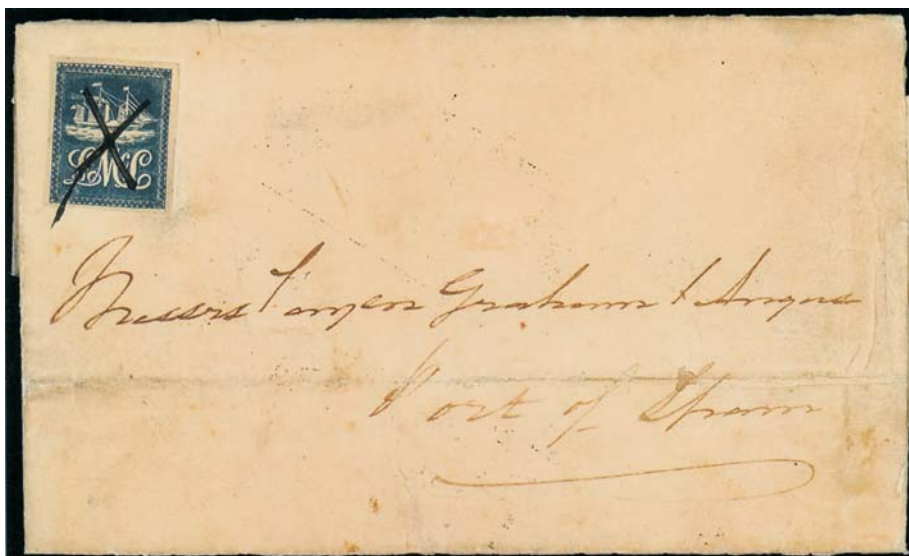 LMcL
Messrs Taryen Graham & Angus
Port of Spain